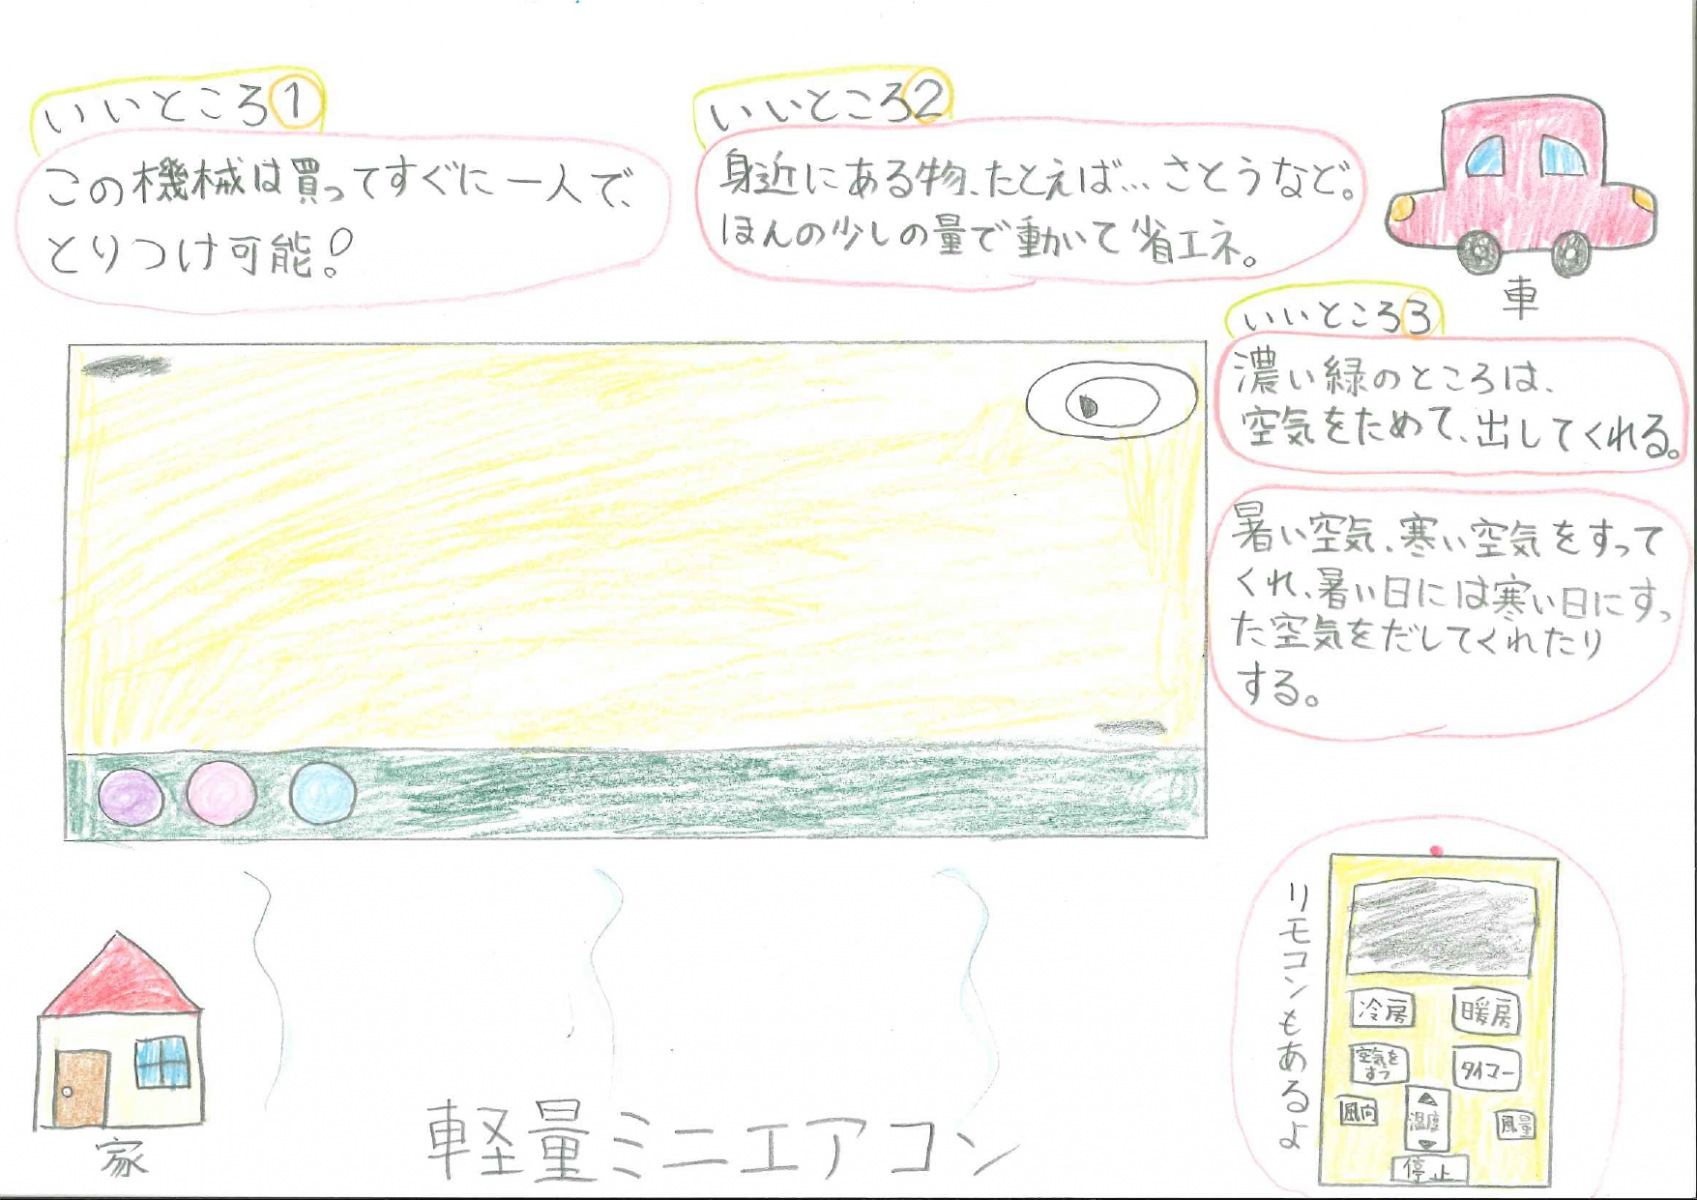 いいところ1
この機械は買ってすぐに一人で、
とりつけ可能!
いいところ2
身近にある物、たとえば…さとうなど。
ほんの少しの量で動いて省エネ。
車
いいところ3
濃い緑のところは、
空気をためて、出してくれる。
暑い空気、寒い空気をすって
くれ、暑い日には寒い日にすっ
た空気をだしてくれたり
する。
リモコンもあるよ
冷房
暖房
空気を
すう
タイマー
風向
温度
風量
停止
家
軽量ミニエアコン